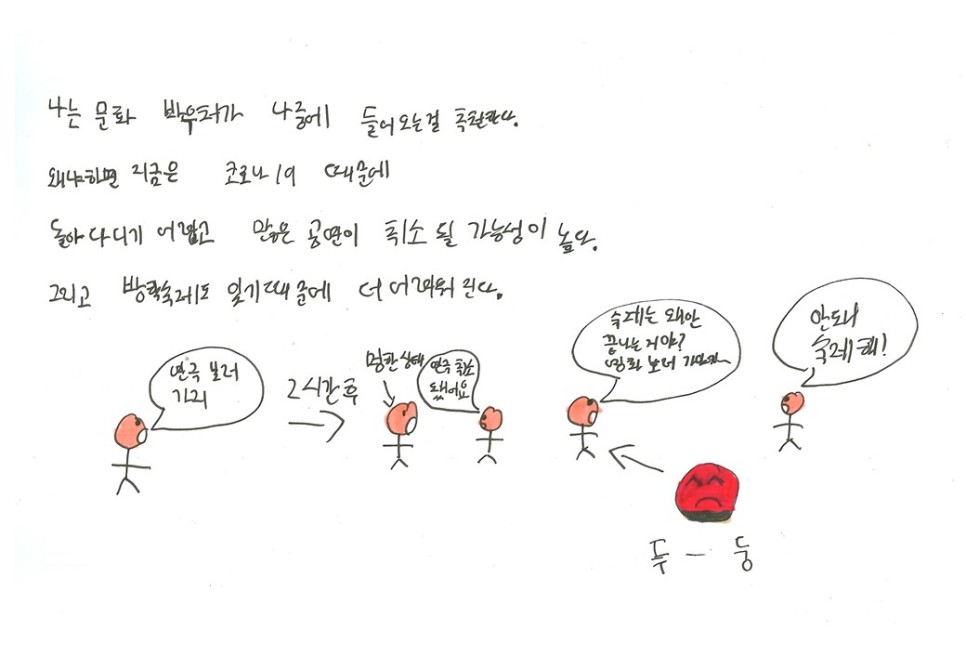 나는 문화 바우처가 나중에 들어오는걸 추천한다.
왜냐하면 지금은 코로나19 때문에
돌아다니기 어렵고 많은 공연이 취소 될 가능성이 높다.
그리고 방학숙제도 있기때문에 더 어려워 진다.
연극 보러
가리
2시간 후
멍한 상태
연극 취소
됐어요
숙제는 왜안
끝나는거야?
영화 보러
안돼
숙제해!
두 - 둥